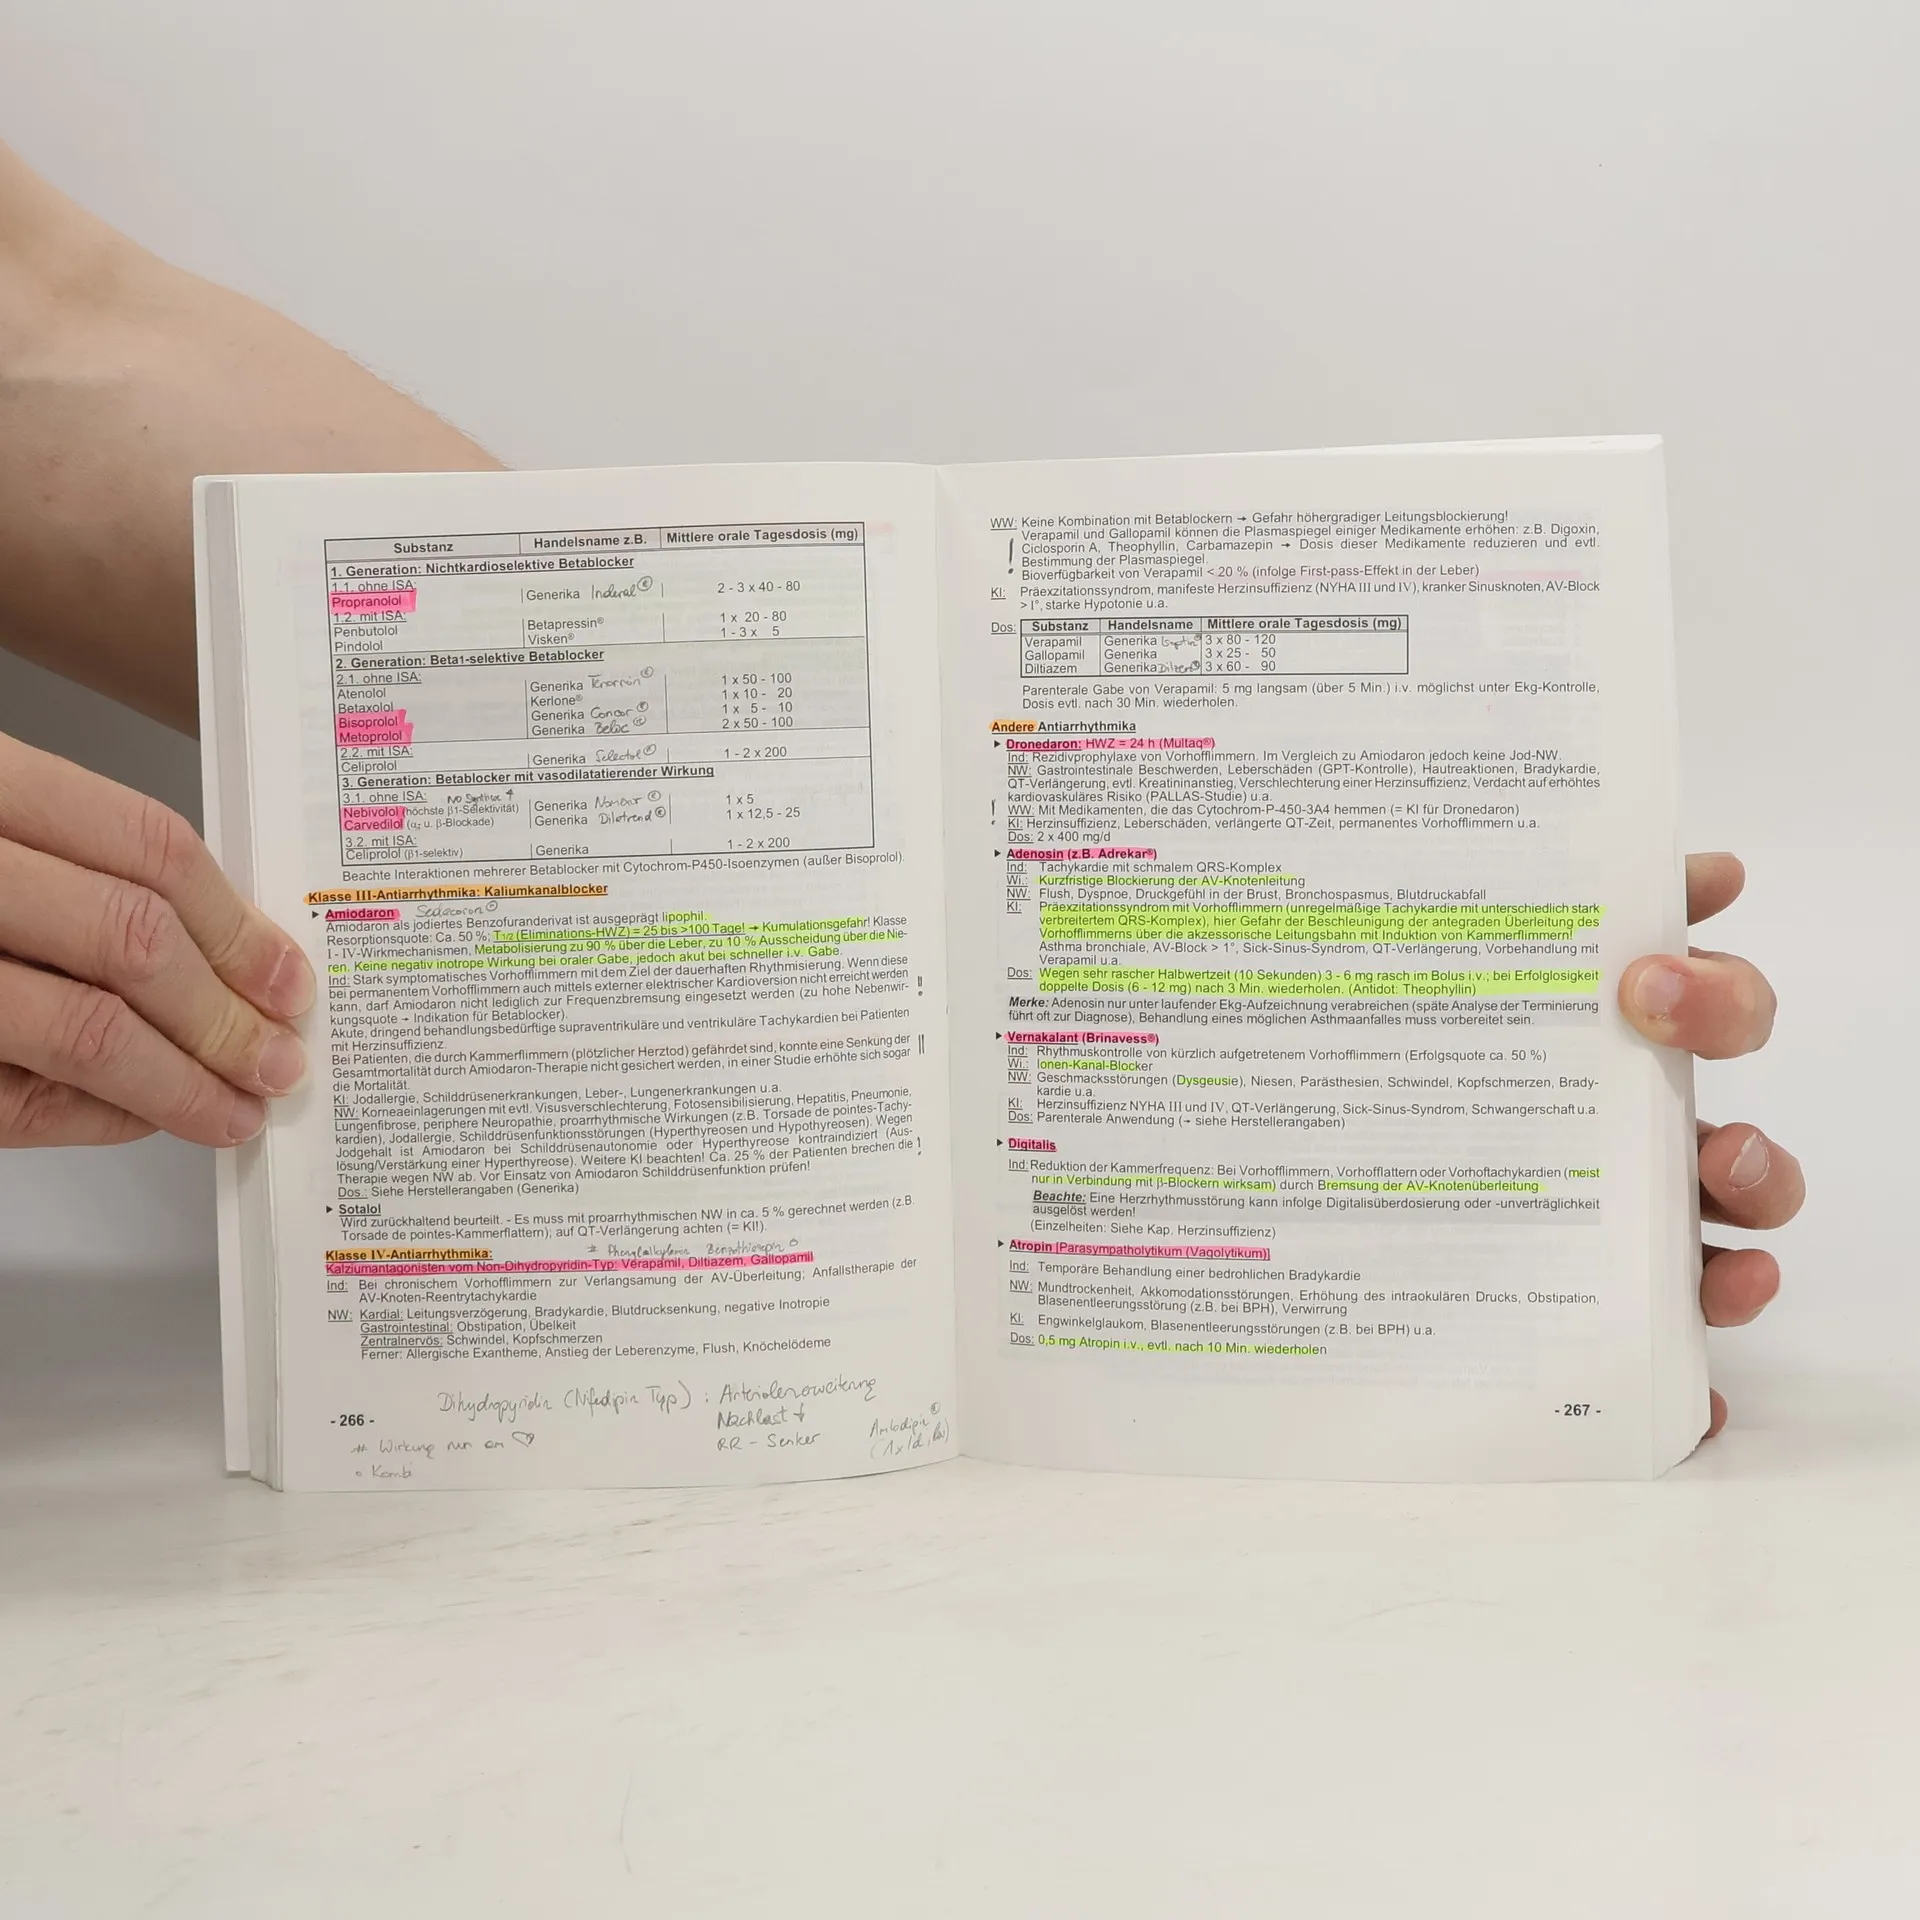 Substanz Handelsname z.B. Mittlere orale Tagesdosis (mg)
1. Generation: Nichtkardioselektive Betablocker
1.1. ohne ISA:
Propranolol Generika Inderal® 2 - 3 x 40 - 80
1.2. mit ISA:
Penbutolol Betapressin® 1 x 20 - 80
Pindolol Visken® 1 - 3 x 5
2. Generation: Beta1-selektive Betablocker
2.1. ohne ISA:
Atenolol Generika Tenormin® 1 x 50 - 100
Betaxolol Kerlone® 1 x 10 - 20
Bisoprolol Generika Concor® 1 x 5 - 10
Metoprolol Generika Beloc® 2 x 50 - 100
2.2. mit ISA:
Celiprolol Generika Selectol® 1 - 2 x 200
3. Generation: Betablocker mit vasodilatatierender Wirkung
3.1. ohne ISA: NO Synthese ↑
Nebivolol (höchste β1-Selektivität) Generika Nomexor® 1 x 5
Carvedilol (α₁ u. β-Blockade) Generika Dilatrend® 1 x 12,5 - 25
3.2. mit ISA:
Celiprolol (β1-selektiv) Generika 1 - 2 x 200
Beachte Interaktionen mehrerer Betablocker mit Cytochrom-P450-Isoenzymen (außer Bisoprolol).
Klasse III-Antiarrhythmika: Kaliumkanalblocker
▸ Amiodaron Sedacoron®
Amiodaron als jodiertes Benzofuranderivat ist ausgeprägt lipophil.
Resorptionsquote: Ca. 50 %; T1/2 (Eliminations-HWZ) = 25 bis >100 Tage! → Kumulationsgefahr! Klasse
I - IV-Wirkmechanismen, Metabolisierung zu 90 % über die Leber, zu 10 % Ausscheidung über die Nie-
ren. Keine negativ inotrope Wirkung bei oraler Gabe, jedoch akut bei schneller i.v. Gabe.
Ind: Stark symptomatisches Vorhofflimmern mit dem Ziel der dauerhaften Rhythmisierung. Wenn diese
bei permanentem Vorhofflimmern auch mittels externer elektrischer Kardioversion nicht erreicht werden
kann, darf Amiodaron nicht lediglich zur Frequenzbremsung eingesetzt werden (zu hohe Nebenwir-
kungsquote → Indikation für Betablocker).
Akute, dringend behandlungsbedürftige supraventrikuläre und ventrikuläre Tachykardien bei Patienten
mit Herzinsuffizienz.
Bei Patienten, die durch Kammerflimmern (plötzlicher Herztod) gefährdet sind, konnte eine Senkung der
Gesamtmortalität durch Amiodaron-Therapie nicht gesichert werden, in einer Studie erhöhte sich sogar
die Mortalität.
KI: Jodallergie, Schilddrüsenerkrankungen, Leber-, Lungenerkrankungen u.a.
NW: Korneaeinlagerungen mit evtl. Visusverschlechterung, Fotosensibilisierung, Hepatitis, Pneumonie,
Lungenfibrose, periphere Neuropathie, proarrhythmische Wirkungen (z.B. Torsade de pointes-Tachy-
kardien), Jodallergie, Schilddrüsenfunktionsstörungen (Hyperthyreosen und Hypothyreosen). Wegen
Jodgehalt ist Amiodaron bei Schilddrüsenautonomie oder Hyperthyreose kontraindiziert (Aus-
lösung/Verstärkung einer Hyperthyreose). Weitere KI beachten! Ca. 25 % der Patienten brechen die
Therapie wegen NW ab. Vor Einsatz von Amiodaron Schilddrüsenfunktion prüfen!
Dos.: Siehe Herstellerangaben (Generika)
▸ Sotalol
Wird zurückhaltend beurteilt. - Es muss mit proarrhythmischen NW in ca. 5 % gerechnet werden (z.B.
Torsade de pointes-Kammerflattern); auf QT-Verlängerung achten (= KI!).
Klasse IV-Antiarrhythmika: # Phenylalkylamin Benzothiazepin o
Kalziumantagonisten vom Non-Dihydropyridin-Typ: Verapamil, Diltiazem, Gallopamil
Ind: Bei chronischem Vorhofflimmern zur Verlangsamung der AV-Überleitung; Anfallstherapie der
AV-Knoten-Reentrytachykardie
NW: Kardial: Leitungsverzögerung, Bradykardie, Blutdrucksenkung, negative Inotropie
Gastrointestinal: Obstipation, Übelkeit
Zentralnervös: Schwindel, Kopfschmerzen
Ferner: Allergische Exantheme, Anstieg der Leberenzyme, Flush, Knöchelödeme
Dihydropyridin (Nifedipin Typ) : Arteriolenerweiterung
Nachlast ↓
RR - Senker
Amlodipin®
(1x/d,
- 266 -
# Wirkung nur am ♡
o Kombi
WW: Keine Kombination mit Betablockern → Gefahr höhergradiger Leitungsblockierung!
Verapamil und Gallopamil können die Plasmaspiegel einiger Medikamente erhöhen: z.B. Digoxin,
Ciclosporin A, Theophyllin, Carbamazepin → Dosis dieser Medikamente reduzieren und evtl.
Bestimmung der Plasmaspiegel.
Bioverfügbarkeit von Verapamil < 20 % (infolge First-pass-Effekt in der Leber)
KI: Präexzitationssyndrom, manifeste Herzinsuffizienz (NYHA III und IV), kranker Sinusknoten, AV-Block
> I°, starke Hypotonie u.a.
Dos: Substanz Handelsname Mittlere orale Tagesdosis (mg)
Verapamil Generika Isoptin® 3 x 80 - 120
Gallopamil Generika 3 x 25 - 50
Diltiazem Generika Dilzem® 3 x 60 - 90
Parenterale Gabe von Verapamil: 5 mg langsam (über 5 Min.) i.v. möglichst unter Ekg-Kontrolle,
Dosis evtl. nach 30 Min. wiederholen.
Andere Antiarrhythmika
▸ Dronedaron: HWZ = 24 h (Multaq®)
Ind: Rezidivprophylaxe von Vorhofflimmern. Im Vergleich zu Amiodaron jedoch keine Jod-NW.
NW: Gastrointestinale Beschwerden, Leberschäden (GPT-Kontrolle), Hautreaktionen, Bradykardie,
QT-Verlängerung, evtl. Kreatininanstieg, Verschlechterung einer Herzinsuffizienz, Verdacht auf erhöhtes
kardiovaskuläres Risiko (PALLAS-Studie) u.a.
WW: Mit Medikamenten, die das Cytochrom-P-450-3A4 hemmen (= KI für Dronedaron)
KI: Herzinsuffizienz, Leberschäden, verlängerte QT-Zeit, permanentes Vorhofflimmern u.a.
Dos: 2 x 400 mg/d
▸ Adenosin (z.B. Adrekar®)
Ind: Tachykardie mit schmalem QRS-Komplex
Wi.: Kurzfristige Blockierung der AV-Knotenleitung
NW: Flush, Dyspnoe, Druckgefühl in der Brust, Bronchospasmus, Blutdruckabfall
KI: Präexzitationssyndrom mit Vorhofflimmern (unregelmäßige Tachykardie mit unterschiedlich stark
verbreitertem QRS-Komplex), hier Gefahr der Beschleunigung der antegraden Überleitung des
Vorhofflimmerns über die akzessorische Leitungsbahn mit Induktion von Kammerflimmern!
Asthma bronchiale, AV-Block > 1°, Sick-Sinus-Syndrom, QT-Verlängerung, Vorbehandlung mit
Verapamil u.a.
Dos: Wegen sehr rascher Halbwertzeit (10 Sekunden) 3 - 6 mg rasch im Bolus i.v.; bei Erfolglosigkeit
doppelte Dosis (6 - 12 mg) nach 3 Min. wiederholen. (Antidot: Theophyllin)
Merke: Adenosin nur unter laufender Ekg-Aufzeichnung verabreichen (späte Analyse der Terminierung
führt oft zur Diagnose), Behandlung eines möglichen Asthmaanfalles muss vorbereitet sein.
▸ Vernakalant (Brinavess®)
Ind: Rhythmuskontrolle von kürzlich aufgetretenem Vorhofflimmern (Erfolgsquote ca. 50 %)
Wi.: Ionen-Kanal-Blocker
NW: Geschmacksstörungen (Dysgeusie), Niesen, Parästhesien, Schwindel, Kopfschmerzen, Brady-
kardie u.a.
KI: Herzinsuffizienz NYHA III und IV, QT-Verlängerung, Sick-Sinus-Syndrom, Schwangerschaft u.a.
Dos: Parenterale Anwendung (→ siehe Herstellerangaben)
▸ Digitalis
Ind: Reduktion der Kammerfrequenz: Bei Vorhofflimmern, Vorhofflattern oder Vorhoftachykardien (meist
nur in Verbindung mit β-Blockern wirksam) durch Bremsung der AV-Knotenüberleitung
Beachte: Eine Herzrhythmusstörung kann infolge Digitalisüberdosierung oder -unverträglichkeit
ausgelöst werden!
(Einzelheiten: Siehe Kap. Herzinsuffizienz)
▸ Atropin [Parasympatholytikum (Vagolytikum)]
Ind: Temporäre Behandlung einer bedrohlichen Bradykardie
NW: Mundtrockenheit, Akkomodationsstörungen, Erhöhung des intraokulären Drucks, Obstipation,
Blasenentleerungsstörung (z.B. bei BPH), Verwirrung
KI: Engwinkelglaukom, Blasenentleerungsstörungen (z.B. bei BPH) u.a.
Dos: 0,5 mg Atropin i.v., evtl. nach 10 Min. wiederholen
- 267 -